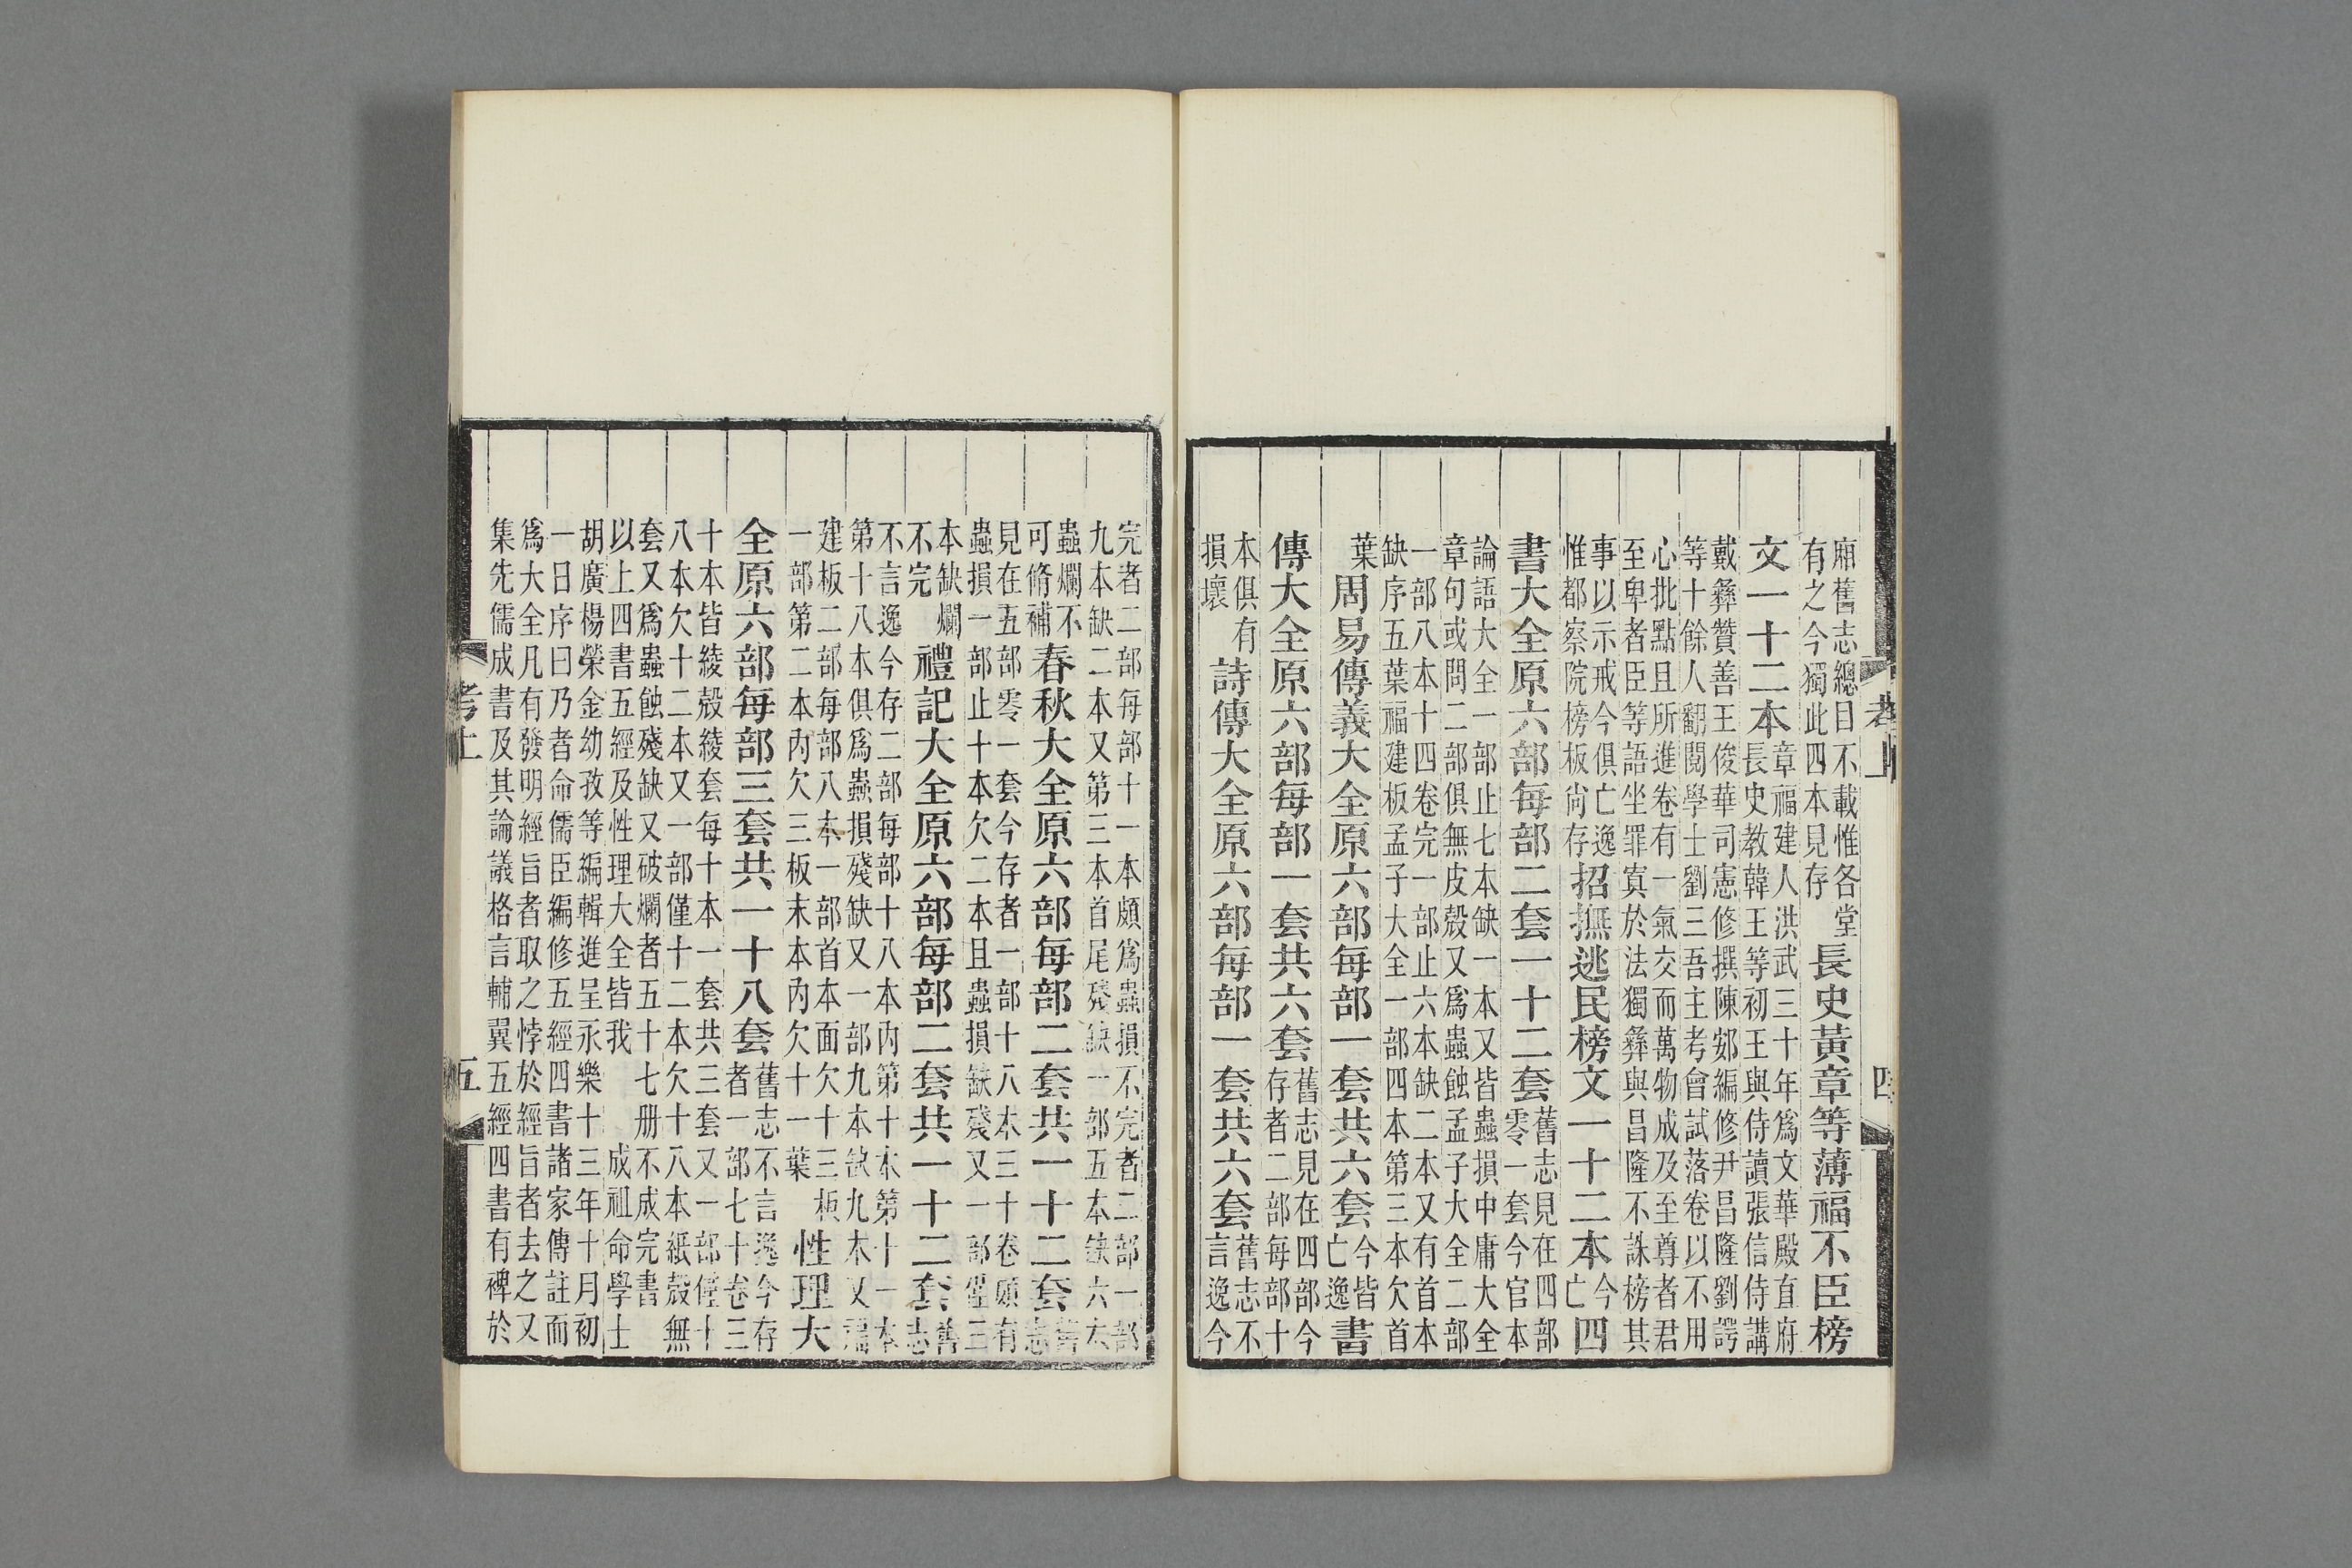 廂舊志總目不載惟各堂
有之今獨此四本見存
長史黃章等薄福不臣榜
文一十二本
章福建人洪武三十年爲文華殿直府
長史教韓王等初王與侍讀張信侍講
戴彝贊善王俊華司憲修撰陳䢿編修尹昌隆劉諤
等十餘人翻閱學士劉三吾主考會試落卷以不用
心批點且所進卷有一氣交而萬物成及至尊者君
至卑者臣等語坐罪寘於法獨彝與昌隆不誅榜其
事以示戒今俱亡逸
惟都察院榜板尚存
招撫逃民榜文一十二本
今
亡
四
書大全原六部每部二套一十二套
舊志見在四部
零一套今官本
論語大全一部止七本缺一本又皆蟲損中庸大全
章句或問二部俱無皮殼又爲蟲蝕孟子大全二部
一部八本十四卷完一部止六本缺二本又有首本
缺序五葉福建板孟子大全一部四本第三本欠首
葉
周易傳義大全原六部每部一套共六套
今皆
亡逸
書
傳大全原六部每部一套共六套
舊志見在四部今
存者二部每部十
本俱有
損壞
詩傳大全原六部每部一套共六套
舊志不
言逸今
考上
四
完者二部每部十一本頗爲蟲損不完者二部一部
九本缺二本又第三本首尾殘缺一部五本缺六本
蟲爛不
可脩補
春秋大全原六部每部二套共一十二套
舊
志
見在五部零一套今存者一部十八本三十卷頗有
蟲損一部止十本欠二本且蟲損缺殘又一部僅三
本缺爛
不完
禮記大全原六部每部二套共一十二套
舊
志
不言逸今存二部每部十八本內第十本第十一本
第十八本俱爲蟲損殘缺又一部九本缺九本又福
建板二部每部八本一部首本面欠十三板
一部第二本內欠三板末本內欠十一葉
性理大
全原六部每部三套共一十八套
舊志不言逸今存
者一部七十卷三
十本皆綾殼綾套每十本一套共三套又一部僅十
八本欠十二本又一部僅十二本欠十八本紙殼無
套又爲蟲蝕殘缺又破爛者五十七册不成完書
以上四書五經及性理大全皆我　成祖命學士
胡廣楊榮金幼孜等編輯進呈永樂十三年十月初
一日序曰乃者命儒臣編修五經四書諸家傳註而
爲大全凡有發明經旨者取之悖於經旨者去之又
集先儒成書及其論議格言輔翼五經四書有裨於
考上
五